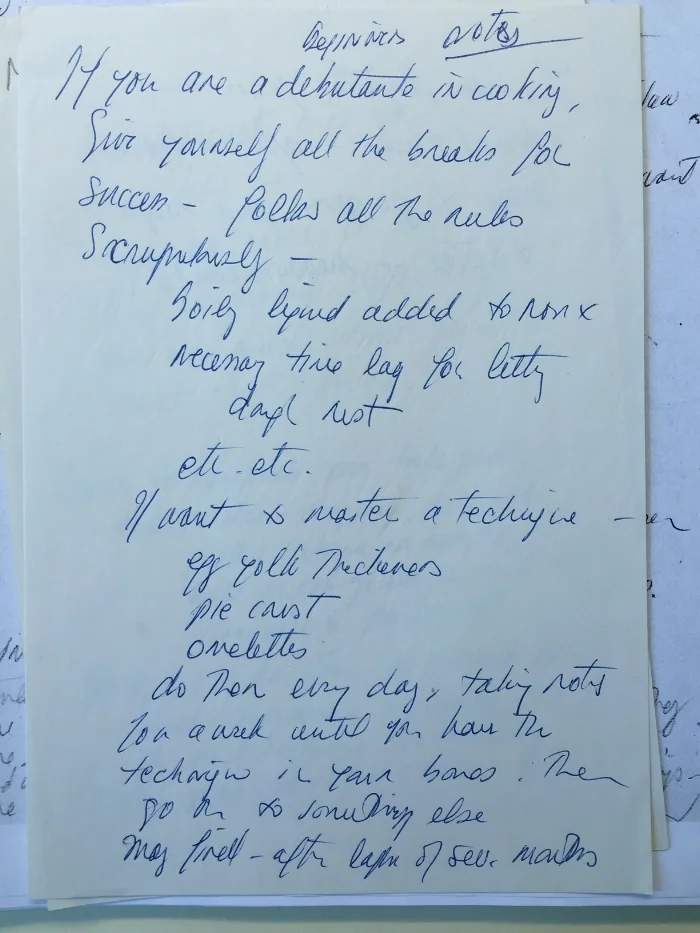 Beginners notes
If you are a debutante in cooking,
Give yourself all the breaks for
success – follow all the rules
Scrupulously –
boiling liquid added to roux
necessary time lag for letting
dough rest
etc. etc.
If want to master a technique –
egg yolk thickeners
pie crust
omelettes
do them every day, taking notes
for a week until you have the
technique in your bones. Then
go on to something else
May find – after lapse of sev. months